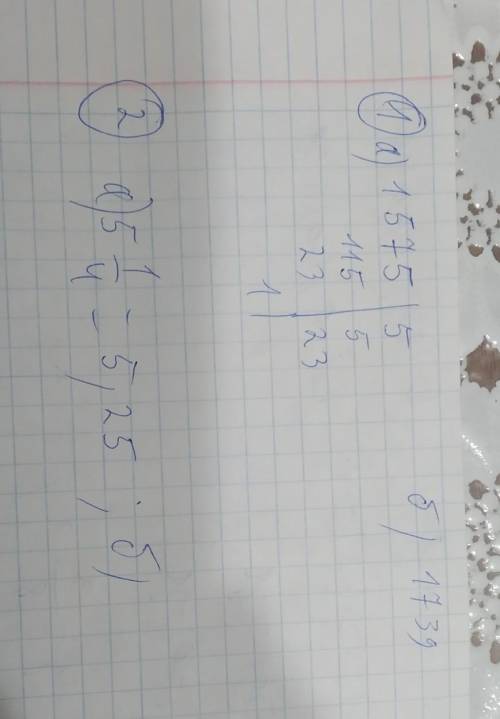 ① а) 1575 | 5 б) 1739
115 | 5
23 | 23
1 |
② а) 5 1/4 = 5,25 ; б)